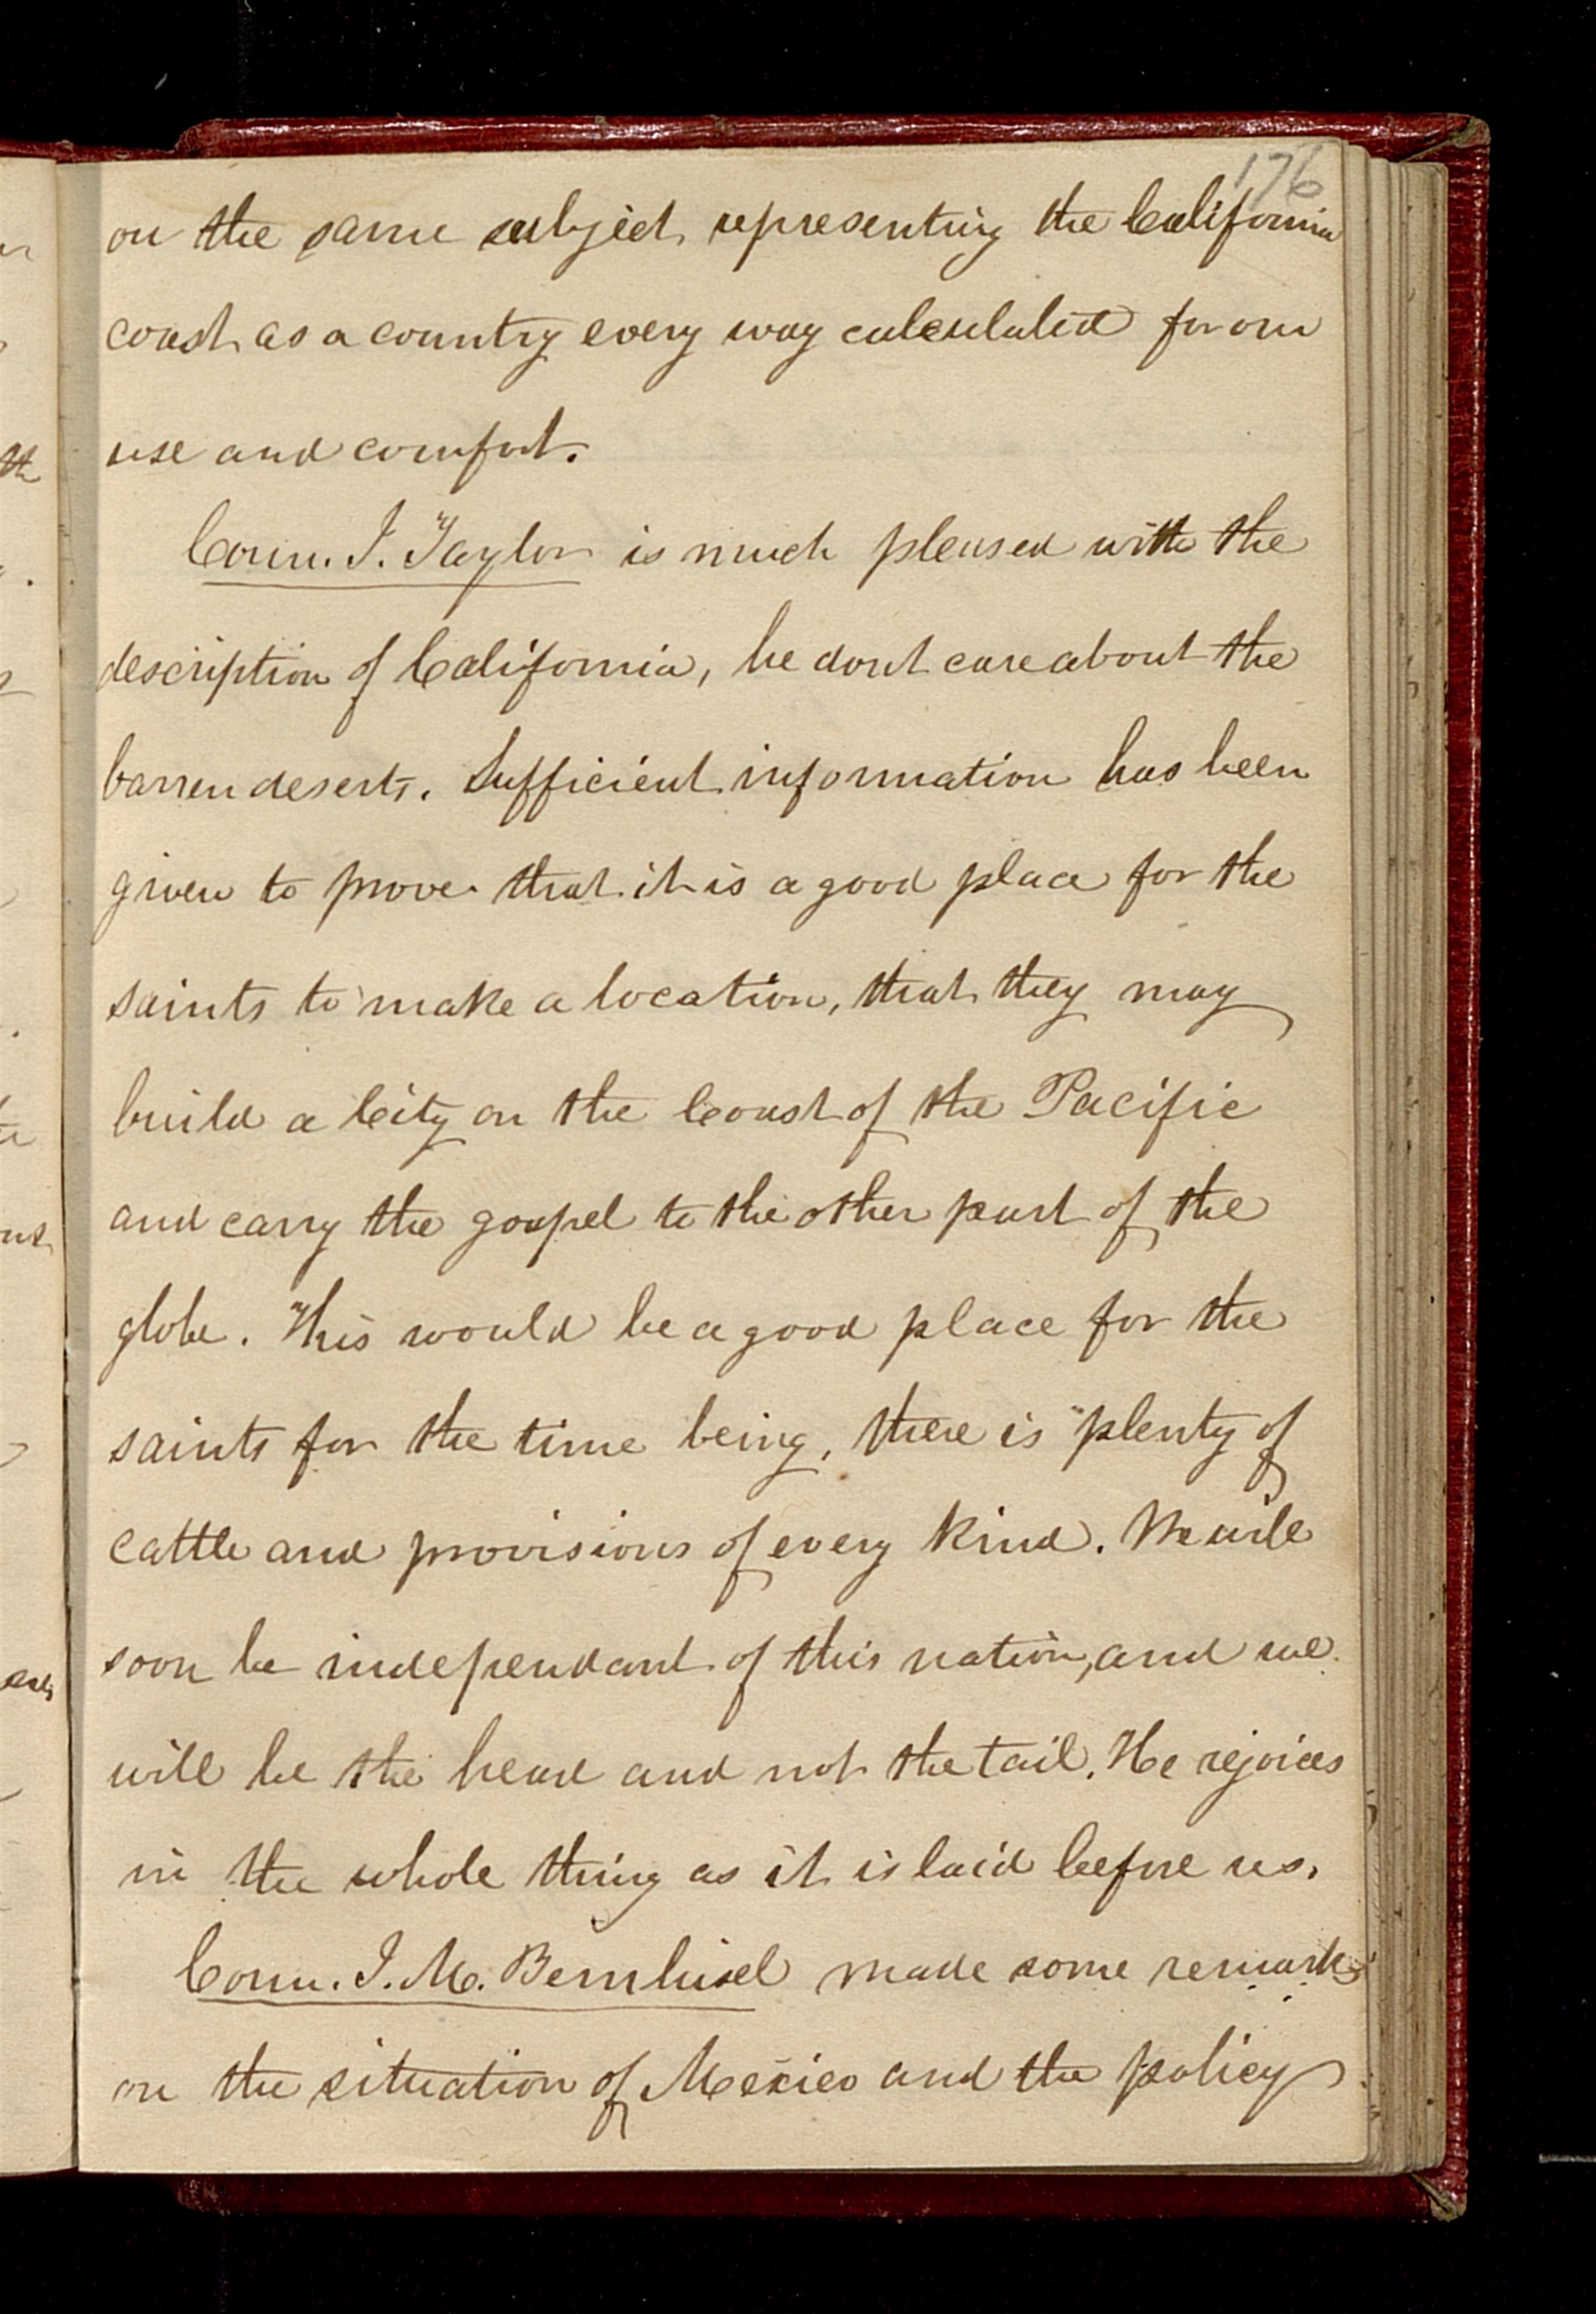 176
on the same subject, representing the California
coast as a country every way calculated for our
use and comfort.
Coun. J. Taylor is much pleased with the
description of California, he dont care about the
barren deserts. Sufficient information has been
given to prove that it is a good place for the
saints to make a location, that they may
build a City on the Coast of the Pacific
and carry the gospel to the other part of the
globe. This would be a good place for the
saints for the time being, there is plenty of
cattle and provisions of every kind. We will
soon be independant of this nation, and we
will be the head and not the tail. He rejoices
in the whole thing as it is laid before us.
Coun. J. M. Bernhisel made some remarks
on the situation of Mexico and the policy